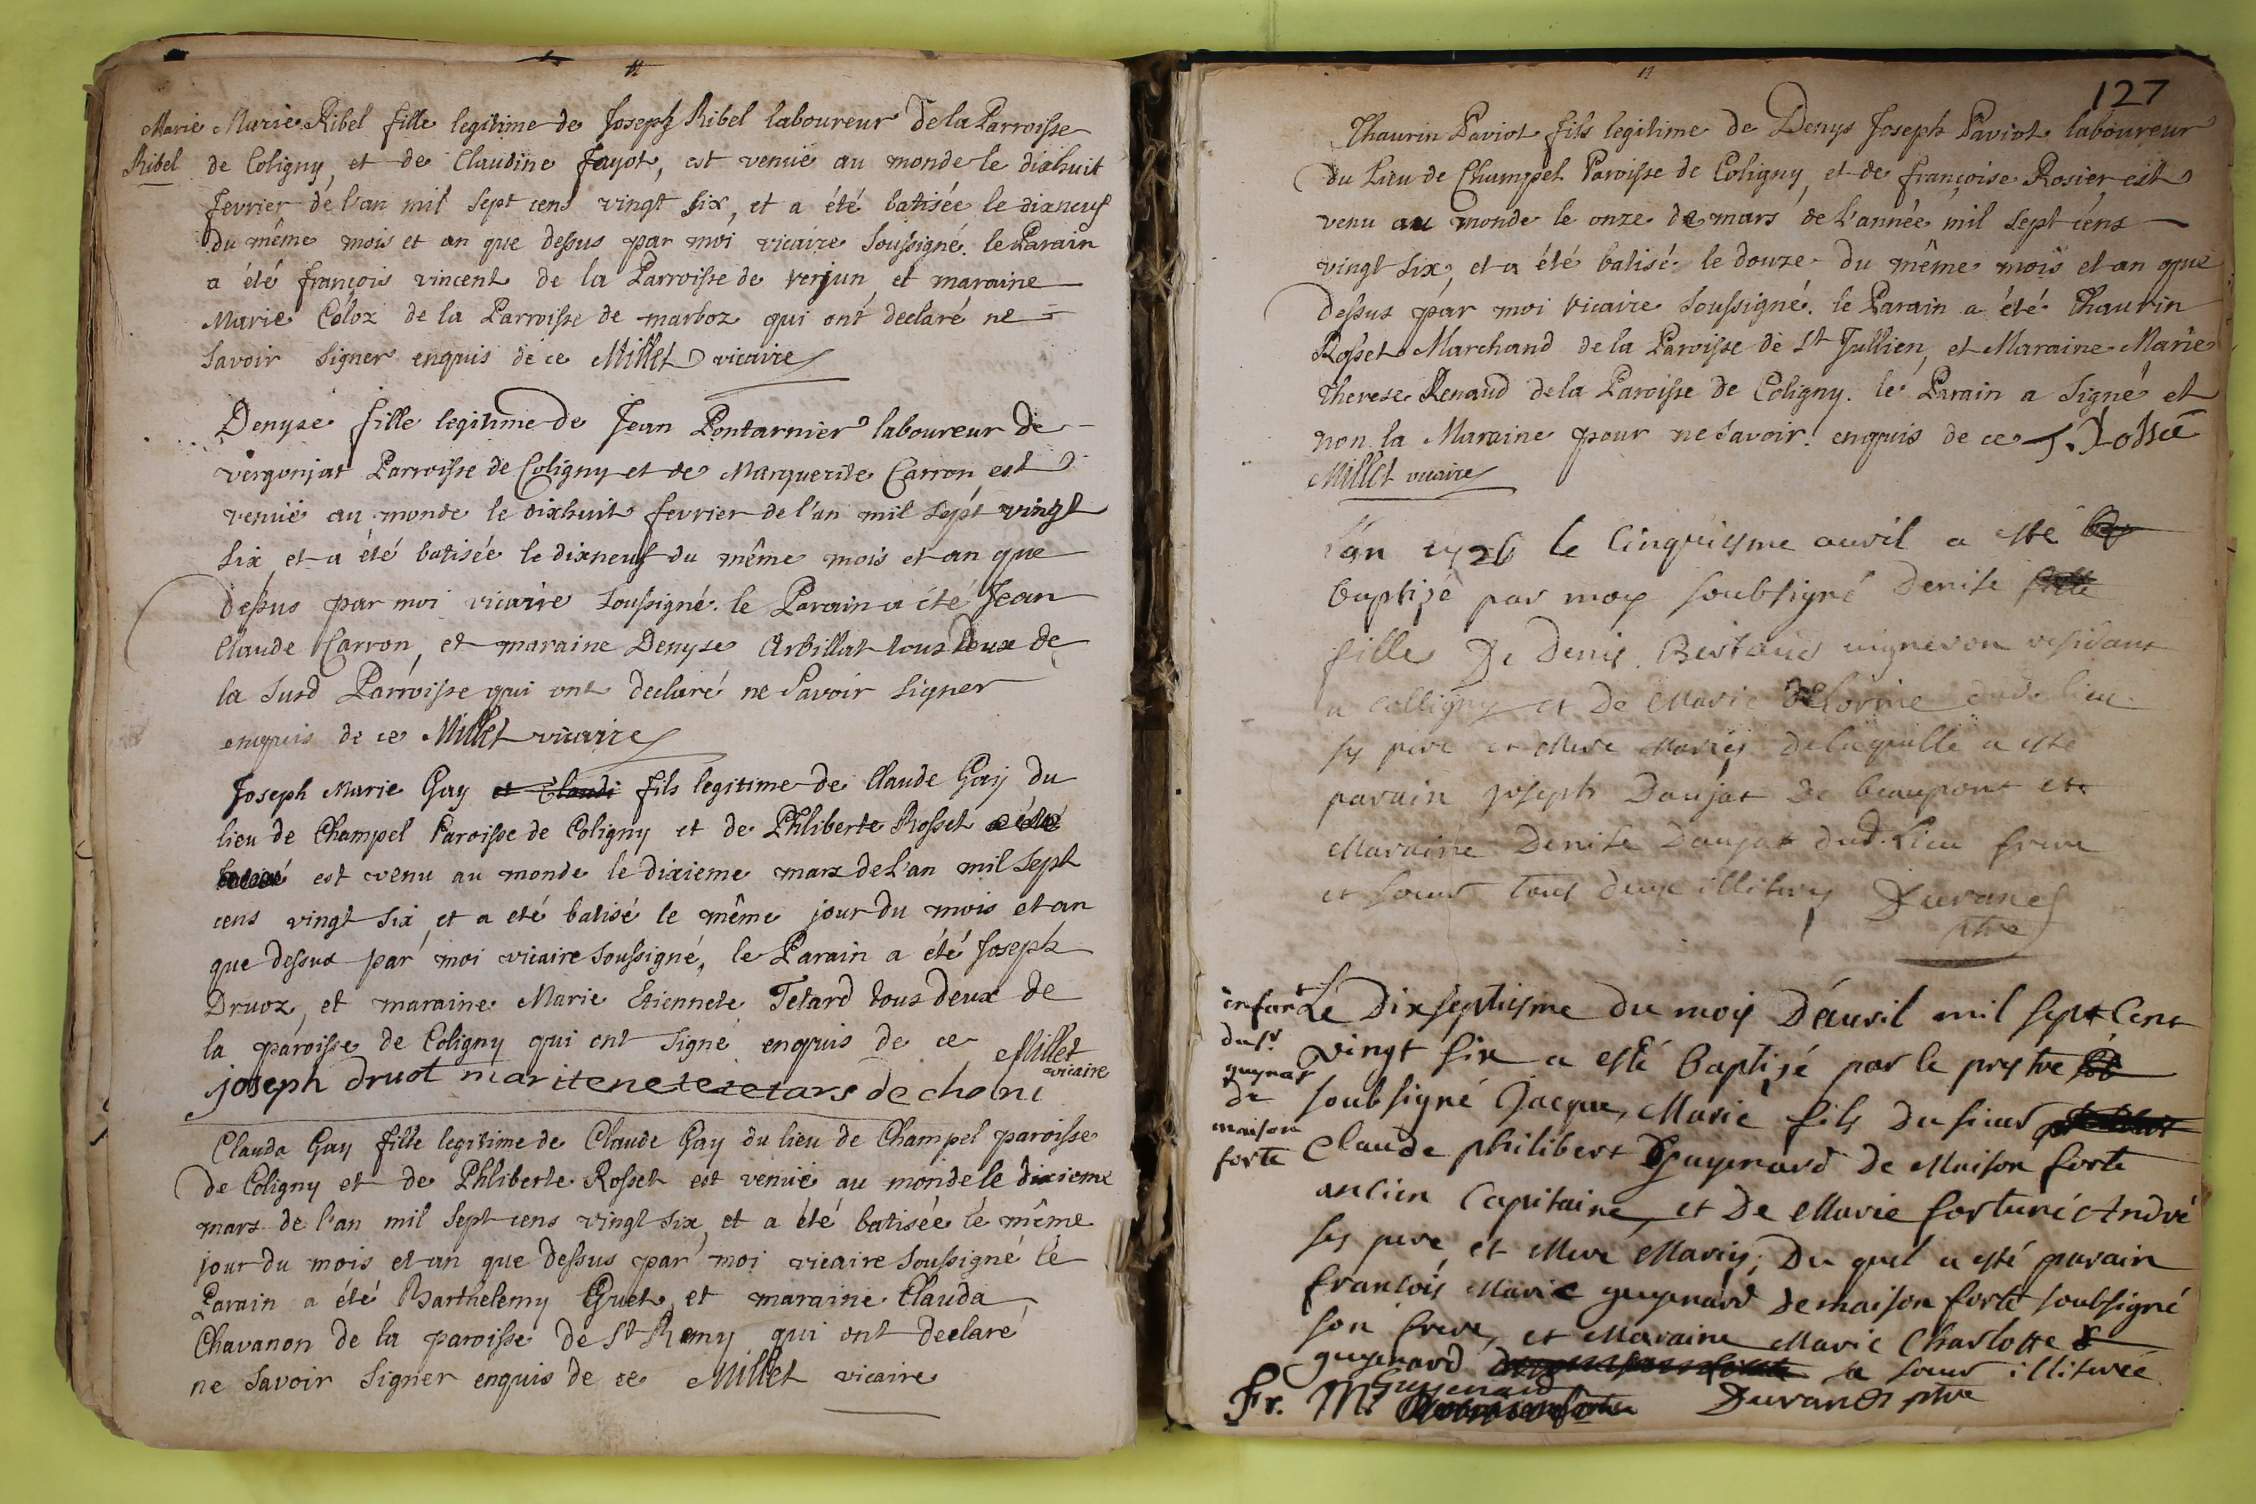 Marie Ribel
Marie Ribel fille legitime de Joseph Ribel laboureur de la Parroisse
de Coligny, et de Claudine fayot, est venuë au monde le dixhuit
fevrier de l'an mil sept cens vingt six, et a été batisée le dixneuf
du même mois et an que dessus par moi vicaire soussigné. le Parain
a été françois vincent de la Parroisse de verjun, et maraine
Marie Coloz de la Parroisse de marboz qui ont declaré ne
savoir signer enquis de ce Millet vicaire
Denyse fille legitime de Jean Pontarnier laboureur de
vergonjat Parroisse de Coligny et de Marguerite Carron est
venuë au monde le dixhuit fevrier de l'an mil sept vingt
six et a été batisée le dixneuf du même mois et an que
dessus par moi vicaire soussigné. le Parain a été Jean
Claude Carron, et maraine Denyse Arbillat tous deux de
la susd Parroisse qui ont declaré ne savoir signer
enquis de ce Millet vicaire
Joseph Marie Gay et Claudi fils legitime de Claude Gay du
lieu de Champel Paroisse de Coligny et de Phliberte Rosset a été
est venu au monde le dixieme mars de l'an mil sept
cens vingt six, et a eté batisé le même jour du mois et an
que dessus par moi vicaire soussigné, le Parain a été Joseph
Druoz, et maraine Marie Etiennete Tetard tous deux de
la paroisse de Coligny qui ont signé enquis de ce Millet
vicaire
joseph druot
Clauda Gay fille legitime de Claude Gay du lieu de Champel paroisse
de Coligny et de Phliberte Rosset est venuë au monde le dixieme
mars de l'an mil sept cens vingt six, et a été batisée le même
jour du mois et an que dessus par moi vicaire soussigné le
Parain a été Barthelemy Guet, et maraine Clauda
Chavanon de la paroisse de St Remy qui ont declaré
ne savoir signer enquis de ce Millet vicaire
127
Thaurin Paviot fils legitime de Denys Joseph Paviot laboureur
du Lieu de Champel Paroisse de Coligny, et de françoise Rosier est
venu au monde le onze de mars de l'année mil sept cens
vingt six, et a été batisé le douze du même mois et an que
dessus par moi vicaire soussigné. le Parain a été Thaurin
Rosset Marchand de la Paroisse de St Jullien, et Maraine Marie
Therese Renaud de la Paroisse de Coligny. le Parain a signé et
non la Maraine pour ne savoir. enquis de ce T. Rosset
Millet vicaire
l'an 1726 le Cinquiesme auril a esté
baptisé par moy soubsigné denise
fille De Denis Bertaud uigneron residant
a Colligny et De Marie Delorme dud. lieu
ses pere et Mere Mariés delaquelle a esté
parain joseph Daujat De beaupont et
Maraine Denise Daujat dud. Lieu frere
et soeur tous deux illiterés Durand
ptre
enfant
du sr
guynar
de
maison
forte
Le Dixseptiesme du mois D'auril mil sept Cent
vingt six a esté baptisé par le prestre
soubsigné Jacque Marie fils du sieur
Claude philibert Guyenard de Maison forte
ancien Capitaine, et De Marie fortuné André
ses pere, et Mere Mariés, Du quel a esté parain
francois Marie guyenard demaison forte soubsigné
son frere, et Maraine Marie Charlotte
guyenard sa soeur illiterée
Fr. M. Guyenard Durand ptre